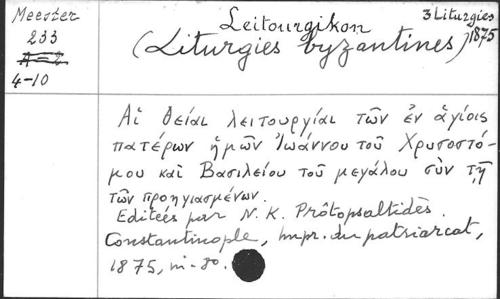 Meester
233
A-2
4-10
Leitourgikon
3 Liturgies
(Liturgies byzantines) 1875
Αἱ θείαι λειτουργίαι τῶν ἐν ἁγίοις
πατέρων ἡμῶν Ἰωάννου τοῦ Χρυσοστό-
μου καὶ Βασιλείου τοῦ μεγάλου σὺν τῇ
τῶν προηγιασμένων.
Editées par N. K. Prôtopsaltidès.
Constantinople, Impr. du patriarcat,
1875, in-80.